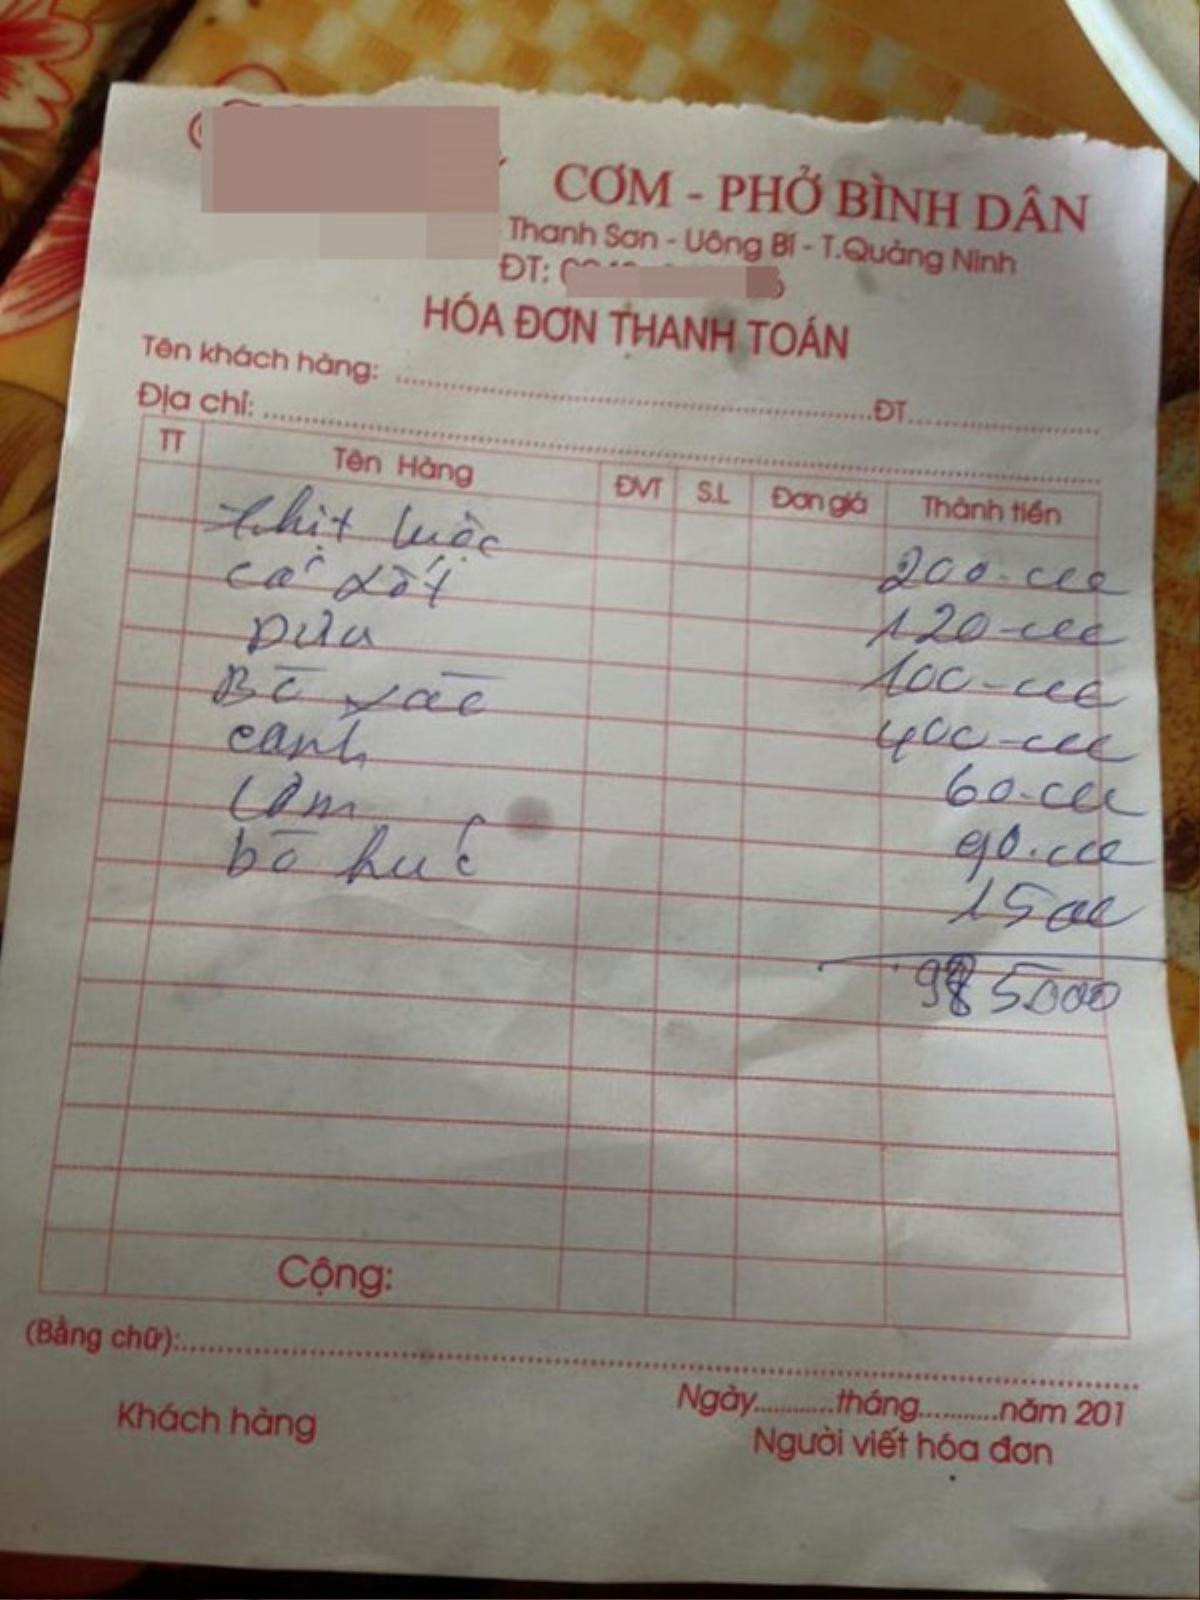 CƠM - PHỞ BÌNH DÂN
Thanh Sơn - Uông Bí - T.Quảng Ninh
ĐT: 0
HÓA ĐƠN THANH TOÁN
Tên khách hàng: ........ ĐT........
Địa chỉ: ........
TT Tên Hàng ĐVT S.L Đơn giá Thành tiền
thịt luộc 200.000
cá sốt 120.000
Dưa 100.000
Bò xào 400.000
canh 60.000
Cơm 90.000
bò húc 15000
985000
Cộng:
(Bằng chữ):........
Ngày........tháng........năm 201
Khách hàng Người viết hóa đơn